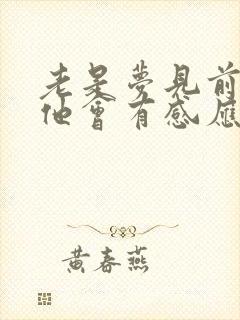 老是夢見前
他會有感應
黃春燕